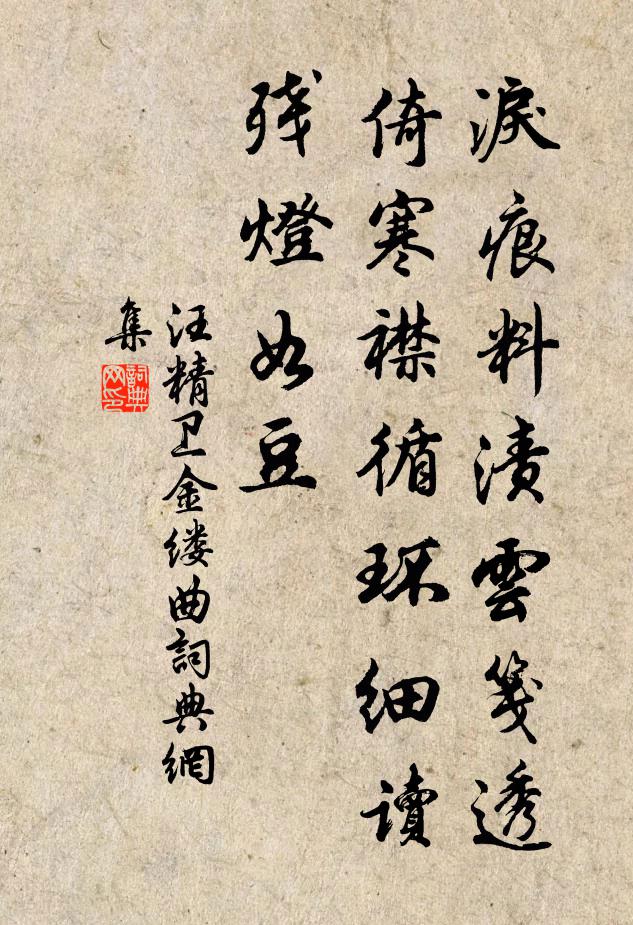 淚痕料漬雲箋透
倚寒襟循环細讀
残燈如豆
汪精卫金缕曲詞典網
集
詞典
网印